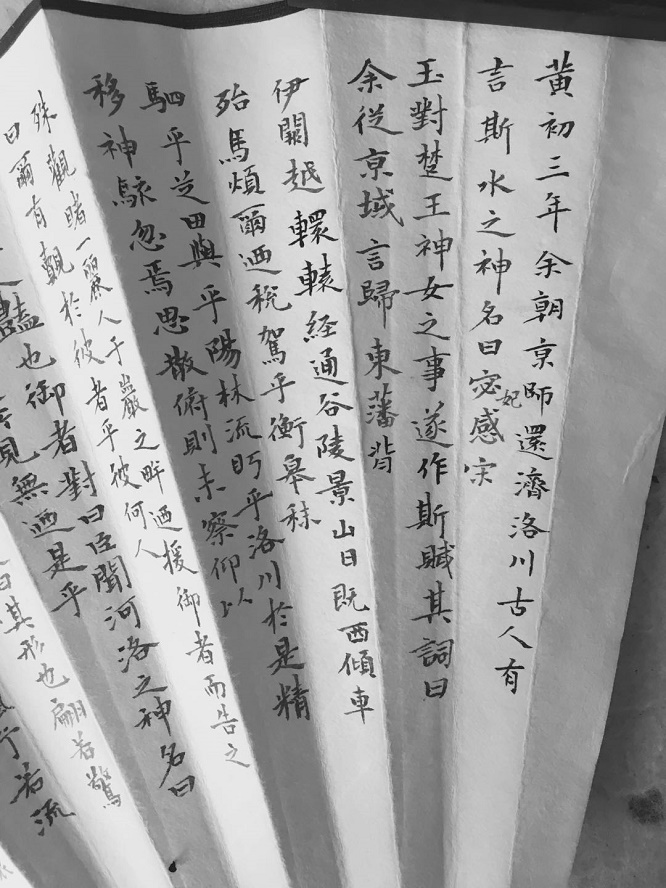 黄初三年余朝京師還濟洛川古人有
言斯水之神名曰宓妃感宋
玉對楚王神女之事遂作斯賦其詞曰
余從京域言歸東藩背
伊闕越轘轅経通谷陵景山日既西傾車
殆馬煩爾迺税駕乎衡皋秣
駟乎芝田與乎陽林流眄乎洛川於是精
移神駭忽焉思散俯則未察仰以
殊觀睹一麗人于巖之畔迺援御者而告之
曰爾有覿於彼者乎彼何人
豔也御者對曰臣聞河洛之神名曰
見無迺是乎
其形也翩若驚
若流